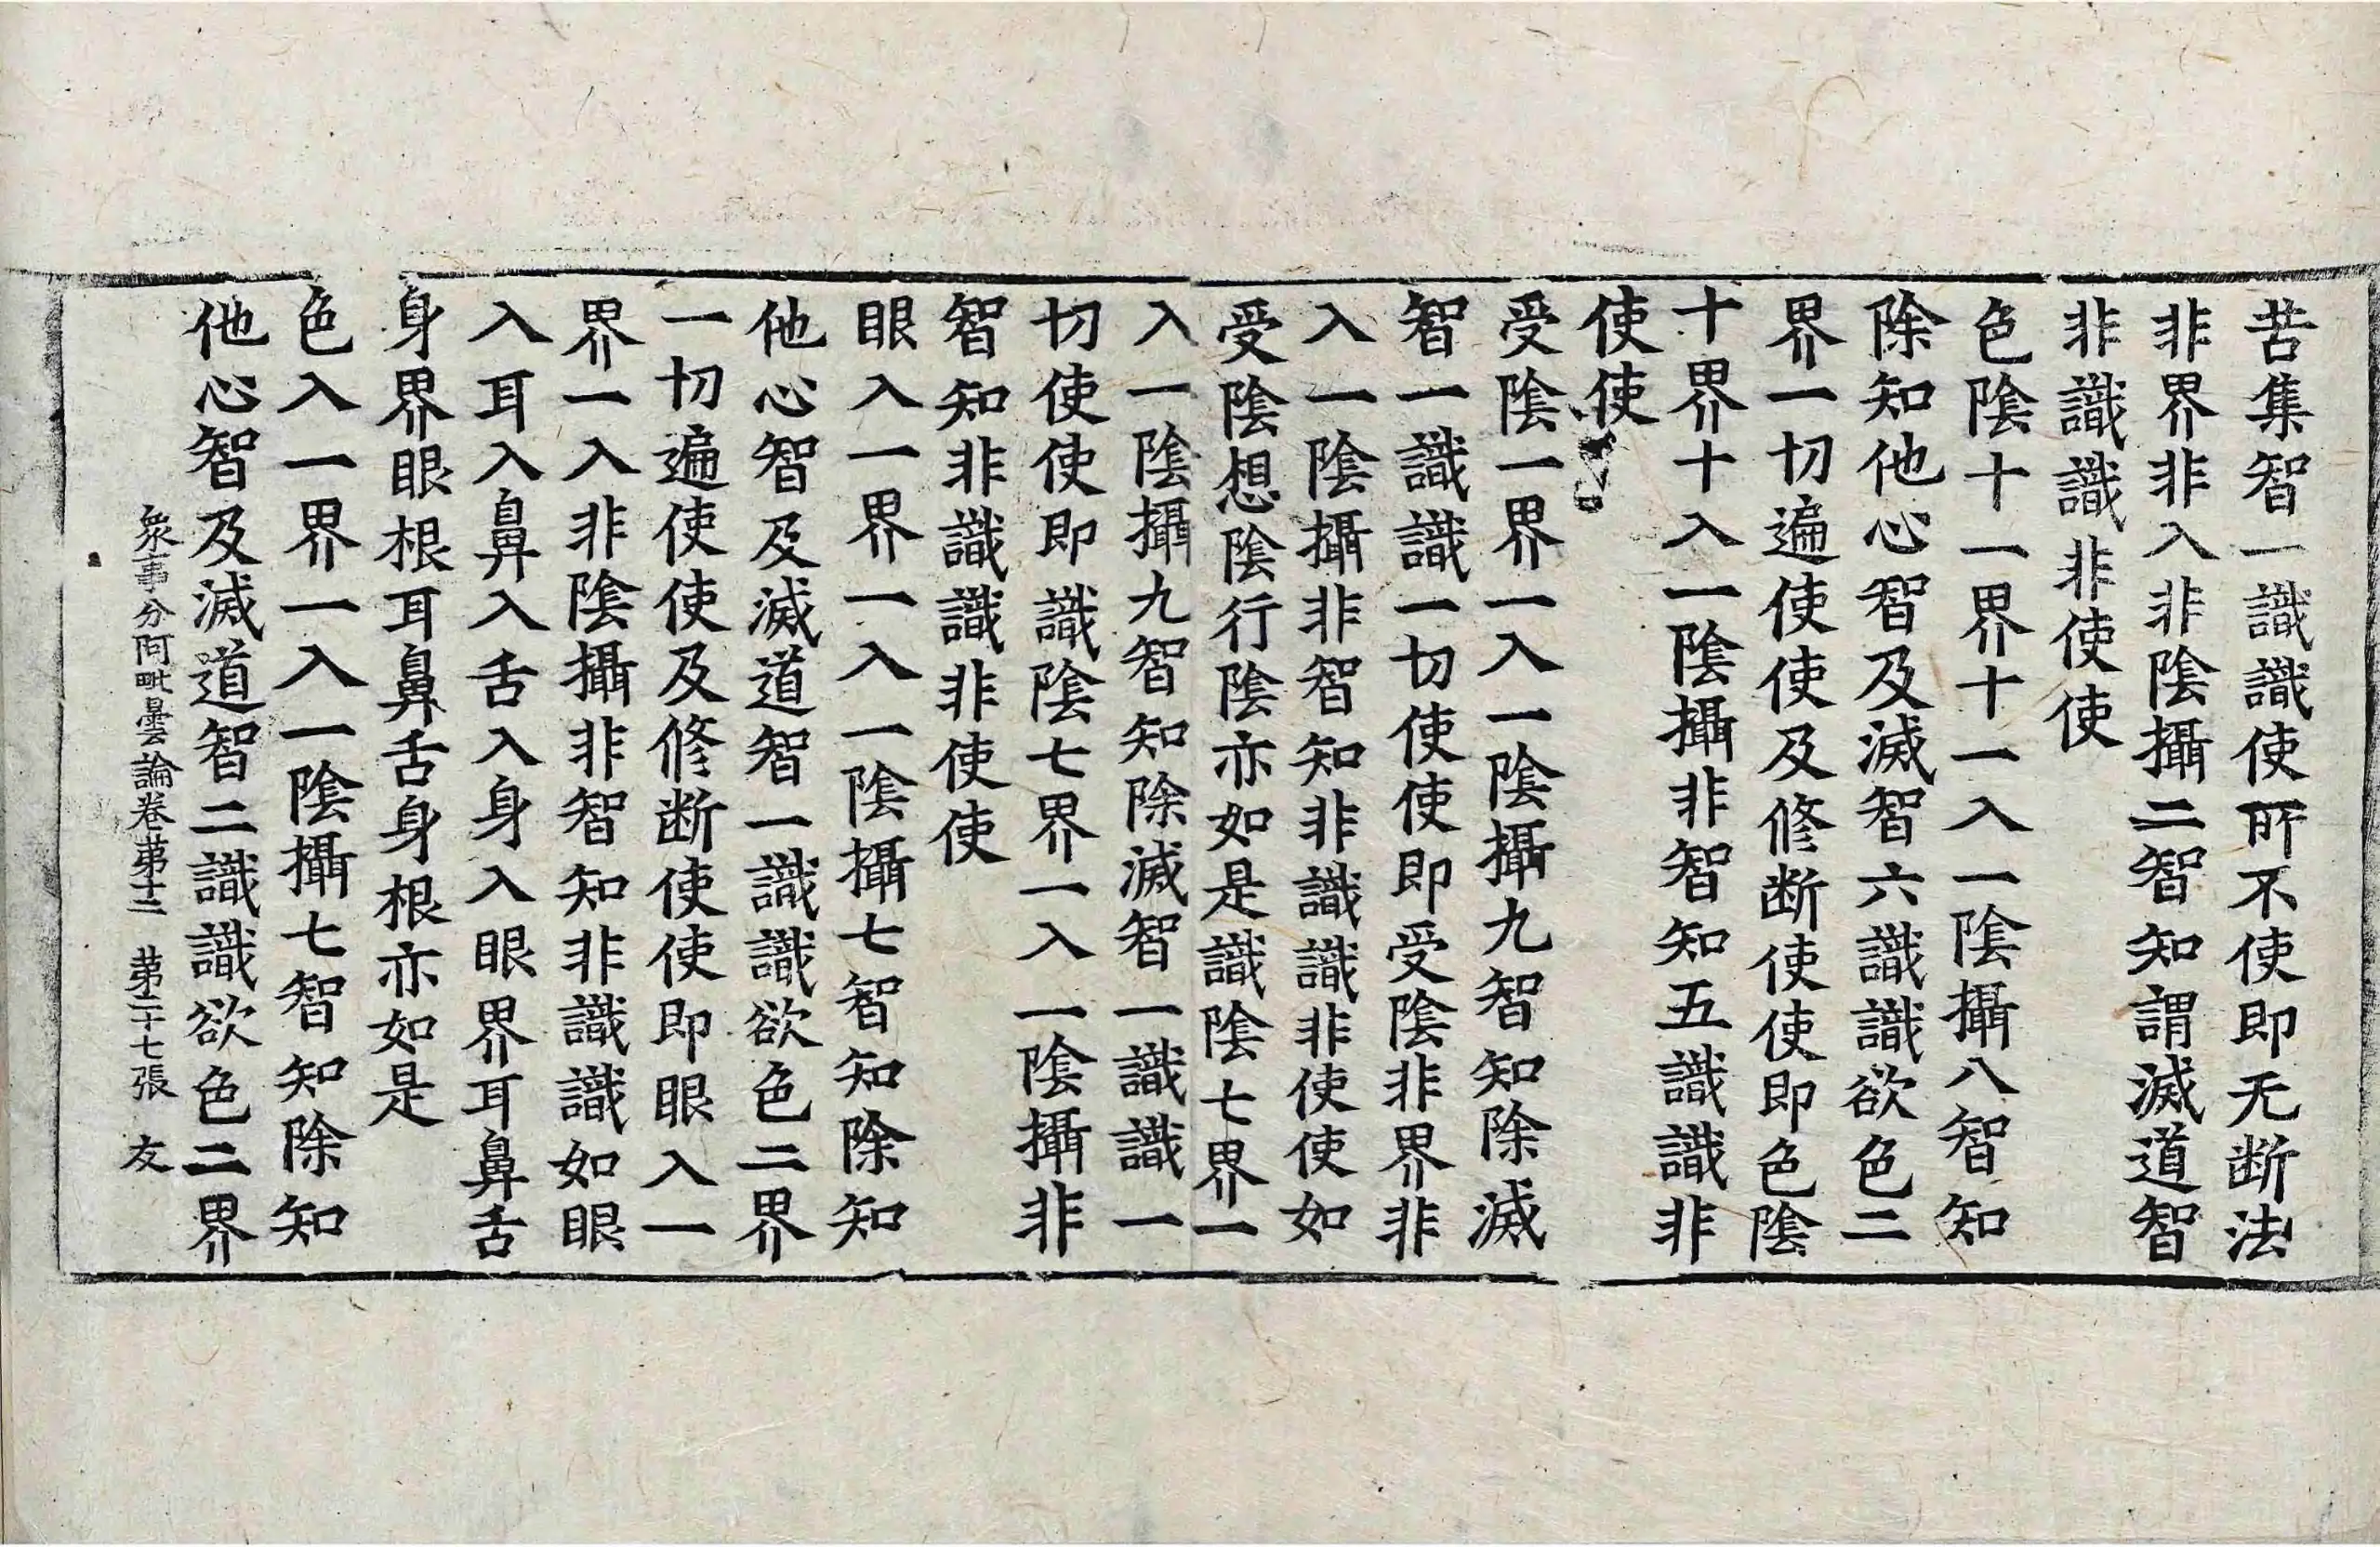 苦集智一識識使所不使即无断法
非界非入非陰攝二智知謂滅道智
非識識非使使
色陰十一界十一入一陰攝八智知
除知他心智及滅智六識識欲色二
界一切遍使使及修断使使即色陰
十界十入一陰攝非智知五識識非
使使
受陰一界一入一陰攝九智知除滅
智一識識一切使使即受陰非界非
入一陰攝非智知非識識非使使如
受陰想陰行陰亦如是識陰七界一
入一陰攝九智知除滅智一識識一
切使使即識陰七界一入一陰攝非
智知非識識非使使
眼入一界一入一陰攝七智知除知
他心智及滅道智一識識欲色二界
一切遍使使及修断使使即眼入一
界一入非陰攝非智知非識識如眼
入耳入鼻入舌入身入眼界耳鼻舌
身界眼根耳鼻舌身根亦如是
色入一界一入一陰攝七智知除知
他心智及滅道智二識識欲色二界
衆事分阿毗曇論卷苐十二 苐二十七張 友